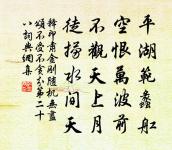 平湖範蠡船
空恨萬波前
不觀天上月
徒撈水間天
韓印肅金剛隨机無盡
頌不受不貪分第二十
八詞典網集